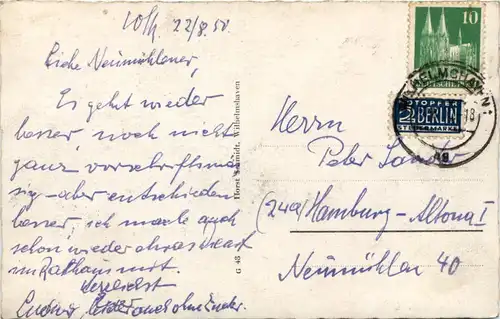 Wh. 22/8.50.
Liebe Neumühlener,
Es geht wieder
besser, noch nicht
ganz vorschriftsmäs
sig - aber entschieden
besser, ich mache auch
schon wieder etwas
im Rathaus mit.
Herzlichst
Horst Schmidt, Wilhelmshaven
G 48
10
WILHELMSHAVEN 1
NOTOPFER
2 BERLIN
STEUERMARKE
18
Herrn
Peter
(24a) Hamburg-Altona I
Neumühlen 40